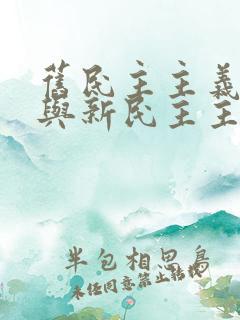 舊民主主義
與新民主主
半包相思鳥
未經同意禁止轉載